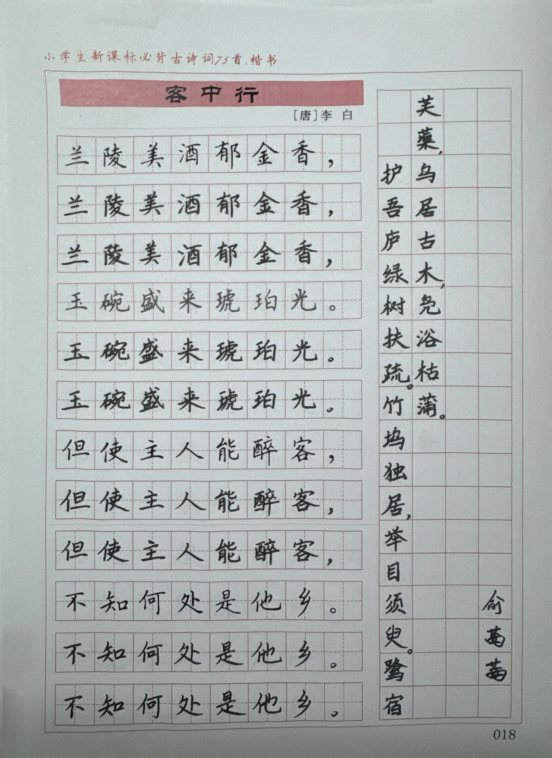 小学生新课标必背古诗词75首.楷书
客中行
[唐]李 白
兰陵美酒郁金香,
兰陵美酒郁金香,
兰陵美酒郁金香,
玉碗盛来琥珀光。
玉碗盛来琥珀光。
玉碗盛来琥珀光。
但使主人能醉客,
但使主人能醉客,
但使主人能醉客,
不知何处是他乡。
不知何处是他乡。
不知何处是他乡。
护吾庐绿树扶疏。竹坞独居,举目须臾。鹭宿
芙蕖,乌居古木,凫浴枯蒲。
俞
018